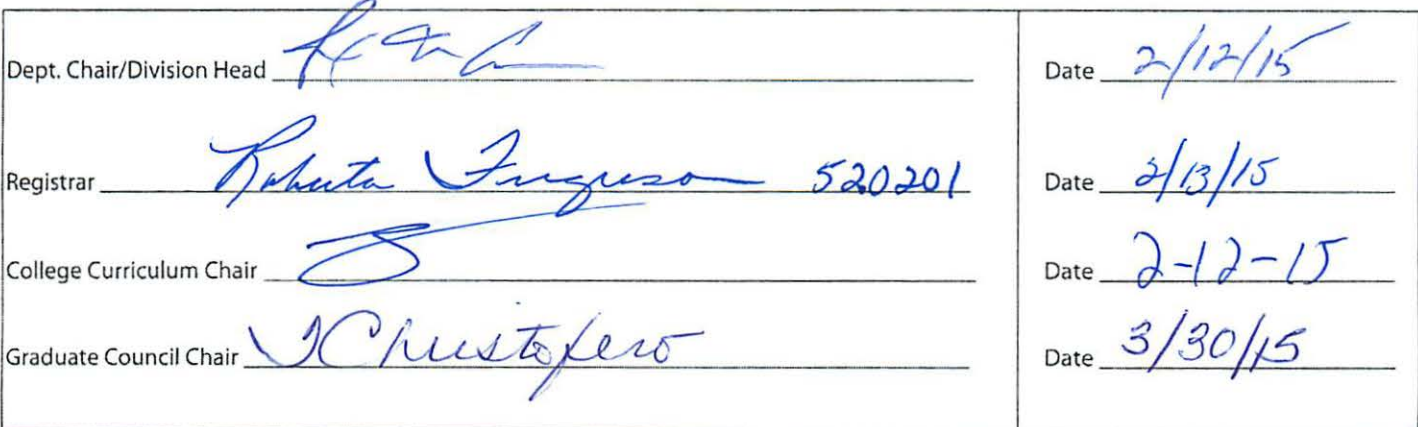 Dept. Chair/Division Head Date 2/12/15
Registrar Roberta Ferguson 520201 Date 2/13/15
College Curriculum Chair Date 2-12-15
Graduate Council Chair Christofero Date 3/30/15